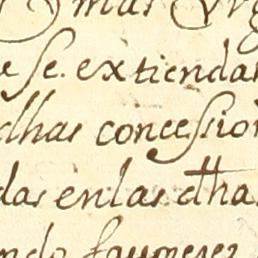 mas
e se. extiendan
dhas concession
das en las dha
ndo